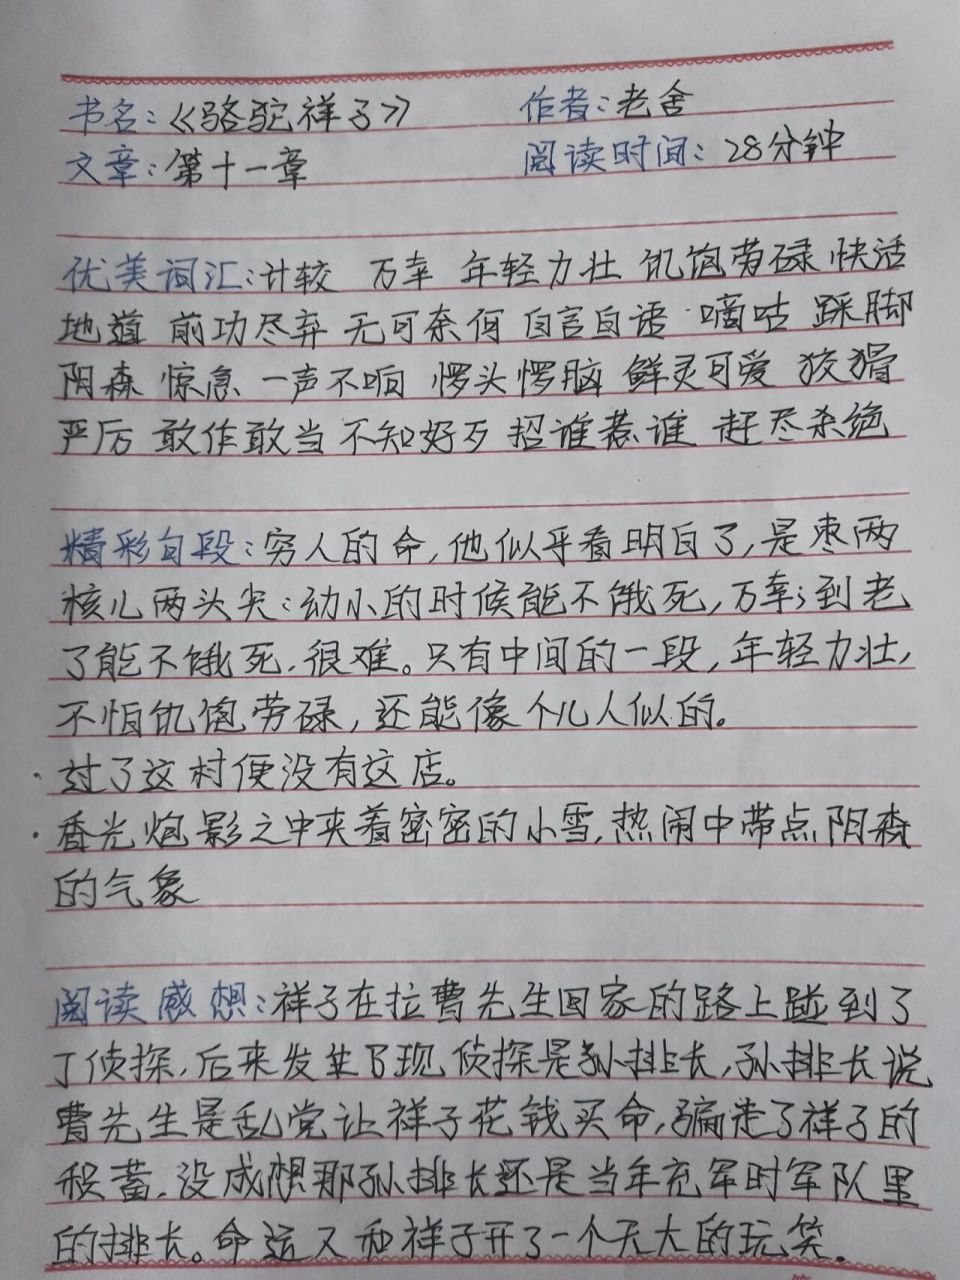 书名:《骆驼祥子》 作者:老舍
文章:第十一章 阅读时间:28分钟
优美词汇:计较 万幸 年轻力壮 饥饱劳碌 快活
地道 前功尽弃 无可奈何 自言自语 嘀咕 跺脚
阴森 惊急 一声不响 愣头愣脑 鲜灵可爱 狡猾
严厉 敢作敢当 不知好歹 招谁惹谁 赶尽杀绝
精彩句段:穷人的命,他似乎看明白了,是枣两
核儿两头尖:幼小的时候能不饿死,万幸;到老
了能不饿死.很难。只有中间的一段,年轻力壮,
不怕饥饱劳碌,还能像个儿人似的。
过了这村便没有这店。
香光炮影之中夹着密密的小雪,热闹中带点阴森
的气象
阅读感想:祥子在拉曹先生回家的路上碰到了
了侦探,后来发生了现侦探是孙排长,孙排长说
曹先生是乱党让祥子花钱买命,骗走了祥子的
积蓄.没成想那孙排长还是当年充军时军队里
的排长。命运又和祥子开了一个天大的玩笑.